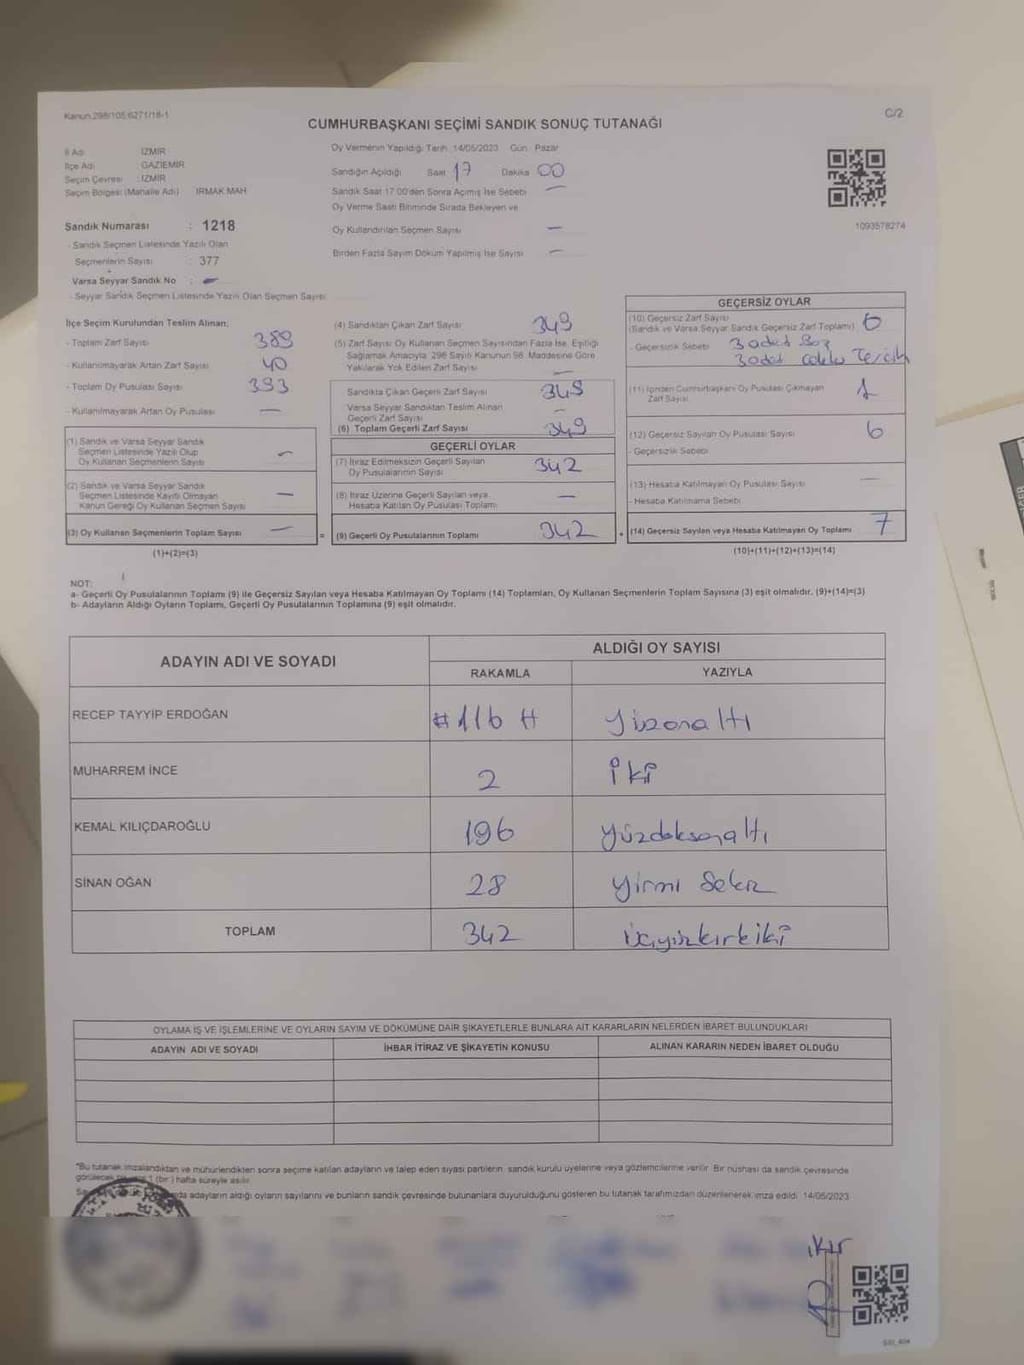 Kanun:298/105;6271/18-1
C/2
CUMHURBAŞKANI SEÇİMİ SANDIK SONUÇ TUTANAĞI
İl Adı İZMİR
İlçe Adı GAZİEMİR
Seçim Çevresi : İZMİR
Seçim Bölgesi (Mahalle Adı) IRMAK MAH
Sandık Numarası : 1218
- Sandık Seçmen Listesinde Yazılı Olan
Seçmenlerin Sayısı : 377
Varsa Seyyar Sandık No : -
- Seyyar Sandık Seçmen Listesinde Yazılı Olan Seçmen Sayısı
Oy Vermenin Yapıldığı Tarih 14/05/2023 Gün Pazar
Sandığın Açıldığı Saat 17 Dakika 00
Sandık Saat 17.00'den Sonra Açılmış İse Sebebi -
Oy Verme Saati Bitiminde Sırada Bekleyen ve
Oy Kullandırılan Seçmen Sayısı -
Birden Fazla Sayım Döküm Yapılmış İse Sayısı -
1093578274
İlçe Seçim Kurulundan Teslim Alınan;
- Toplam Zarf Sayısı 389
- Kullanılmayarak Artan Zarf Sayısı 40
- Toplam Oy Pusulası Sayısı 393
- Kullanılmayarak Artan Oy Pusulası -
(1) Sandık ve Varsa Seyyar Sandık
Seçmen Listesinde Yazılı Olup
Oy Kullanan Seçmenlerin Sayısı -
(2) Sandık ve Varsa Seyyar Sandık
Seçmen Listesinde Kayıtlı Olmayan
Kanun Gereği Oy Kullanan Seçmen Sayısı -
(3) Oy Kullanan Seçmenlerin Toplam Sayısı -
(1)+(2)=(3)
(4) Sandıktan Çıkan Zarf Sayısı 349
(5) Zarf Sayısı Oy Kullanan Seçmen Sayısından Fazla İse, Eşitliği
Sağlamak Amacıyla, 298 Sayılı Kanunun 98. Maddesine Göre
Yakılarak Yok Edilen Zarf Sayısı -
Sandıkta Çıkan Geçerli Zarf Sayısı 349
Varsa Seyyar Sandıktan Teslim Alınan
Geçerli Zarf Sayısı -
(6) Toplam Geçerli Zarf Sayısı 349
GEÇERLİ OYLAR
(7) İtiraz Edilmeksizin Geçerli Sayılan
Oy Pusulalarının Sayısı 342
(8) İtiraz Üzerine Geçerli Sayılan veya
Hesaba Katılan Oy Pusulası Toplamı -
= (9) Geçerli Oy Pusulalarının Toplamı 342
GEÇERSİZ OYLAR
(10) Geçersiz Zarf Sayısı
(Sandık ve Varsa Seyyar Sandık Geçersiz Zarf Toplamı) 0
- Geçersizlik Sebebi 3 adet Boş
3 adet Tercih
(11) İçinden Cumhurbaşkanı Oy Pusulası Çıkmayan
Zarf Sayısı 1
(12) Geçersiz Sayılan Oy Pusulası Sayısı 6
- Geçersizlik Sebebi
(13) Hesaba Katılmayan Oy Pusulası Sayısı -
- Hesaba Katılmama Sebebi
+ (14) Geçersiz Sayılan veya Hesaba Katılmayan Oy Toplamı 7
(10)+(11)+(12)+(13)=(14)
NOT:
a- Geçerli Oy Pusulalarının Toplamı (9) ile Geçersiz Sayılan veya Hesaba Katılmayan Oy Toplamı (14) Toplamları, Oy Kullanan Seçmenlerin Toplam Sayısına (3) eşit olmalıdır. (9)+(14)=(3)
b- Adayların Aldığı Oyların Toplamı, Geçerli Oy Pusulalarının Toplamına (9) eşit olmalıdır.
ADAYIN ADI VE SOYADI
ALDIĞI OY SAYISI
RAKAMLA YAZIYLA
RECEP TAYYİP ERDOĞAN # 116 # Yüzonaltı
MUHARREM İNCE 2 iki
KEMAL KILIÇDAROĞLU 196 yüzdoksanaltı
SİNAN OĞAN 28 yirmi sekiz
TOPLAM 342 üçyüzkırkiki
OYLAMA İŞ VE İŞLEMLERİNE VE OYLARIN SAYIM VE DÖKÜMÜNE DAİR ŞİKAYETLERLE BUNLARA AİT KARARLARIN NELERDEN İBARET BULUNDUKLARI
ADAYIN ADI VE SOYADI İHBAR İTİRAZ VE ŞİKAYETİN KONUSU ALINAN KARARIN NEDEN İBARET OLDUĞU
*Bu tutanak imzalandıktan ve mühürlendikten sonra seçime katılan adayların ve talep eden siyasi partilerin sandık kurulu üyelerine veya gözlemcilerine verilir. Bir nüshası da sandık çevresinde
görülecek 1 (bir) hafta süreyle asılır.
adayların aldığı oyların sayılarını ve bunların sandık çevresinde bulunanlara duyurulduğunu gösteren bu tutanak tarafımızdan düzenlenerek imza edildi. 14/05/2023